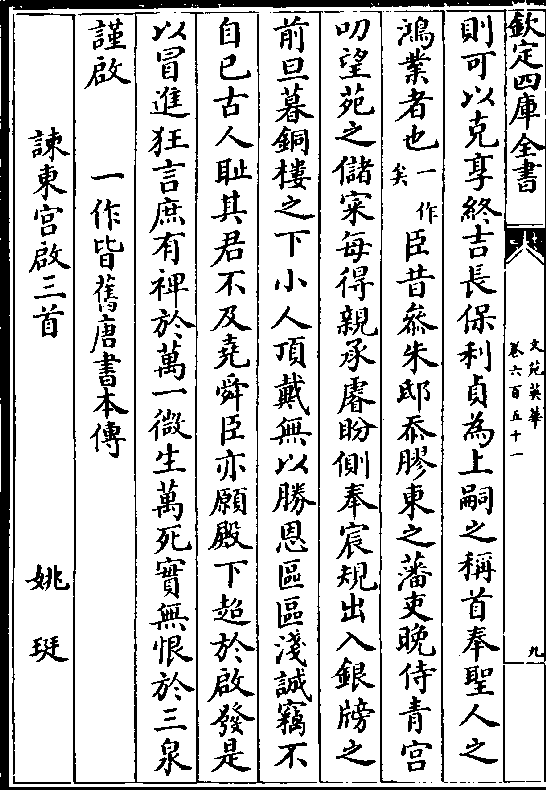 欽定四庫全書
文苑英華
卷六百五十一
九
則可以克享終吉長保利貞為上嗣之稱首奉聖人之
鴻業者也一作矣臣昔叅朱邸忝膠東之藩吏晚侍青宮
叨望苑之儲寀每得親承睿盼側奉宸規出入銀牓之
前旦暮銅樓之下小人頂戴無以勝恩區區淺誠竊不
自已古人耻其君不及堯舜臣亦願殿下超於啟發是
以冒進狂言庶有裨於萬一微生萬死實無恨於三泉
謹啟 一作皆舊唐書本傳
諫東宮啟三首 姚珽